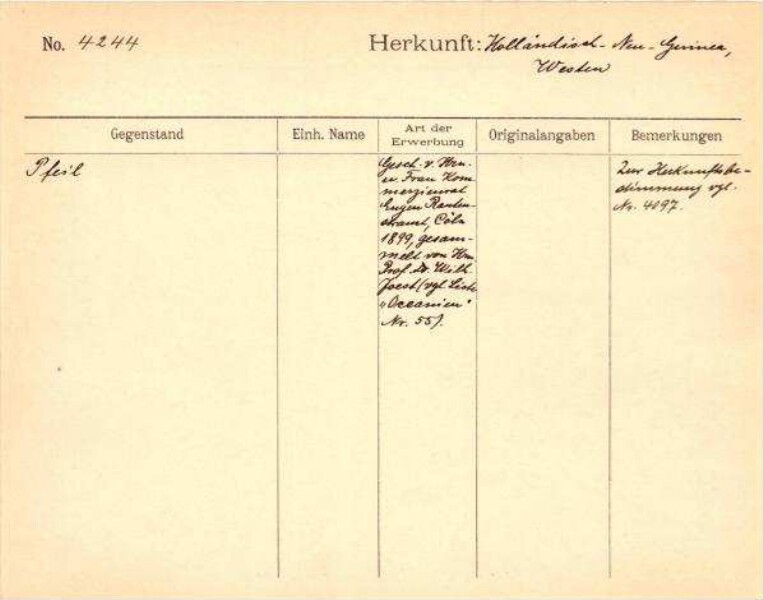 No. 4244
Herkunft: Holländisch-Neu-Guinea,
Westen
Gegenstand
Einh. Name
Art der
Erwerbung
Originalangaben
Bemerkungen
Pfeil
Gesch. v. Hrn.
u. Frau Kom
merzienrat
Eugen Rauten
strauch, Cöln
1899, gesam-
melt von Hrn
Prof. Dr. Wilh.
Joest (vgl. Liste
"Oceanien"
Nr. 55).
Zur Herkunftsbe-
stimmung vgl.
Nr. 4097.